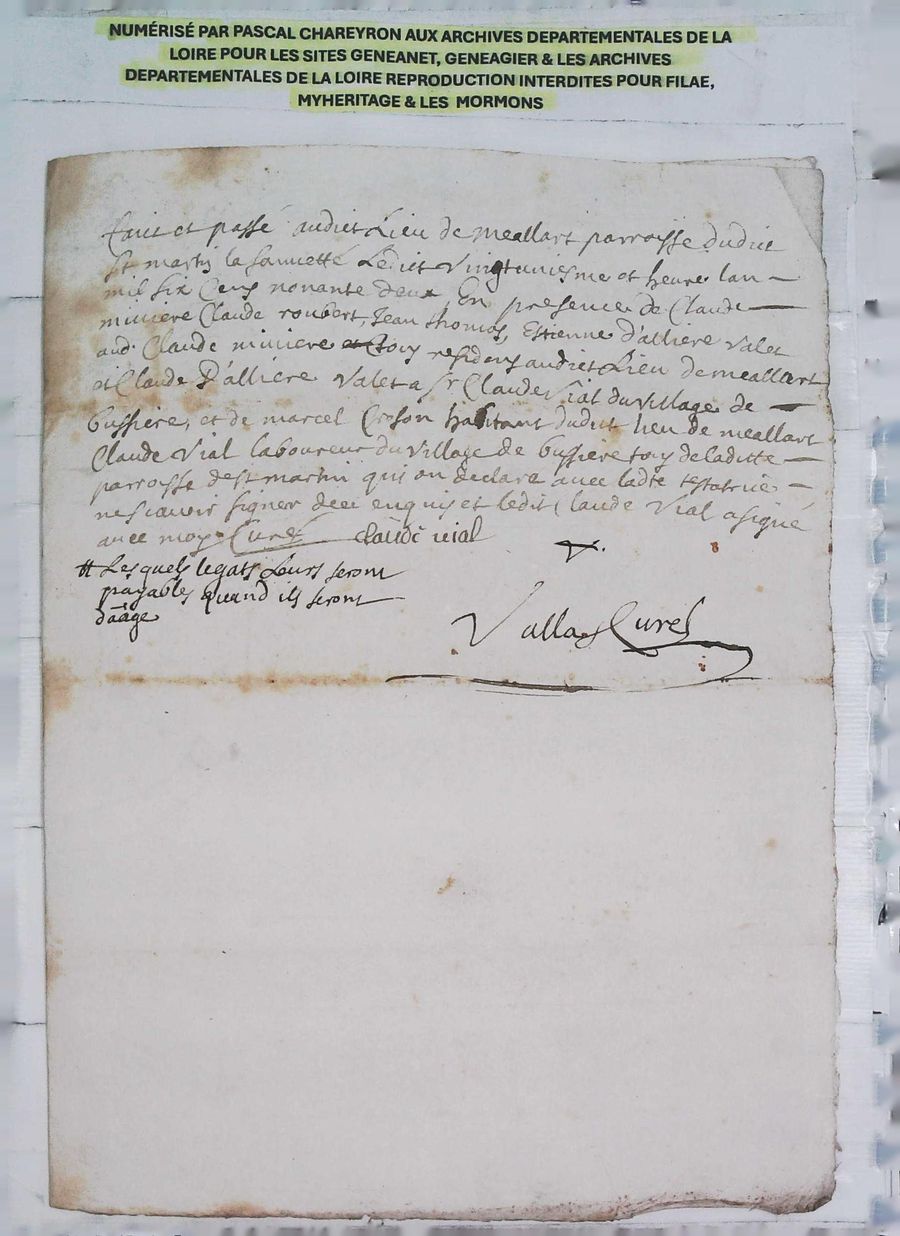 NUMÉRISÉ PAR PASCAL CHAREYRON AUX ARCHIVES DEPARTEMENTALES DE LA
LOIRE POUR LES SITES GENEANET, GENEAGIER & LES ARCHIVES
DEPARTEMENTALES DE LA LOIRE REPRODUCTION INTERDITES POUR FILAE,
MYHERITAGE & LES MORMONS
faict et passé audict Lieu de meallart parroisse dudict
St martin la sauvetté Ledict vingtuniesme et heure lan
mil six cens nonante deux En presence de Claude
miviere Claude roubert, Jean thomas, Estienne d'alliere valet
aud. Claude miviere tous residens audict Lieu de meallart
et Claude D'alliere valet a Sr Claude Vial du village de
bussiere, et de marcel Croson habitant dudict lieu de meallart
Claude Vial laboureur du village de bussiere de laditte
parroisse de st martin qui on declare avec ladte testatrice
ne scavoir signer de ce enquis et ledit Claude Vial a signé
avec moy Curé claude vial
# Lesquels legats Leurs seront
payables quand ils seront
d'aage
Vallas Curé